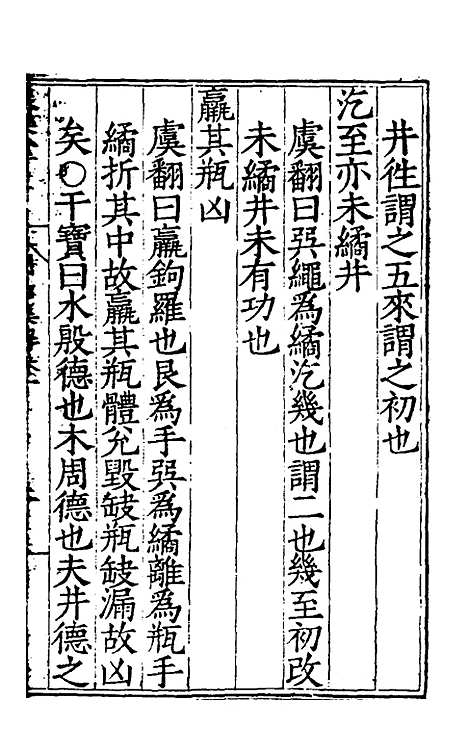 井徃謂之五來謂之初也
汔至亦未繘井
虞翻曰㢲繩爲繘汔幾也謂二也幾至初改
未繘井未有功也
羸其瓶凶
虞翻曰羸鉤羅也艮爲手㢲爲繘離爲瓶手
繘折其中故羸其瓶體兊毀缺瓶缺漏故凶
矣〇干寶曰水殷德也木周德也夫井德之